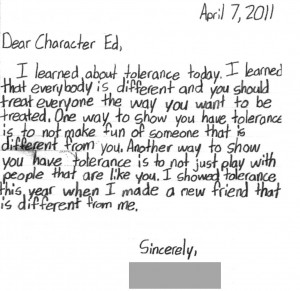 April 7, 2011
Dear Character Ed,
I learned about tolerance today. I learned
that everybody is different and you should
treat everyone the way you want to be
treated. One way to show you have tolerance
is to not make fun of someone that is
different from you. Another way to show
you have tolerance is to not just play with
people that are like you. I showed tolerance
this year when I made a new friend that
is different from me.
Sincerely,